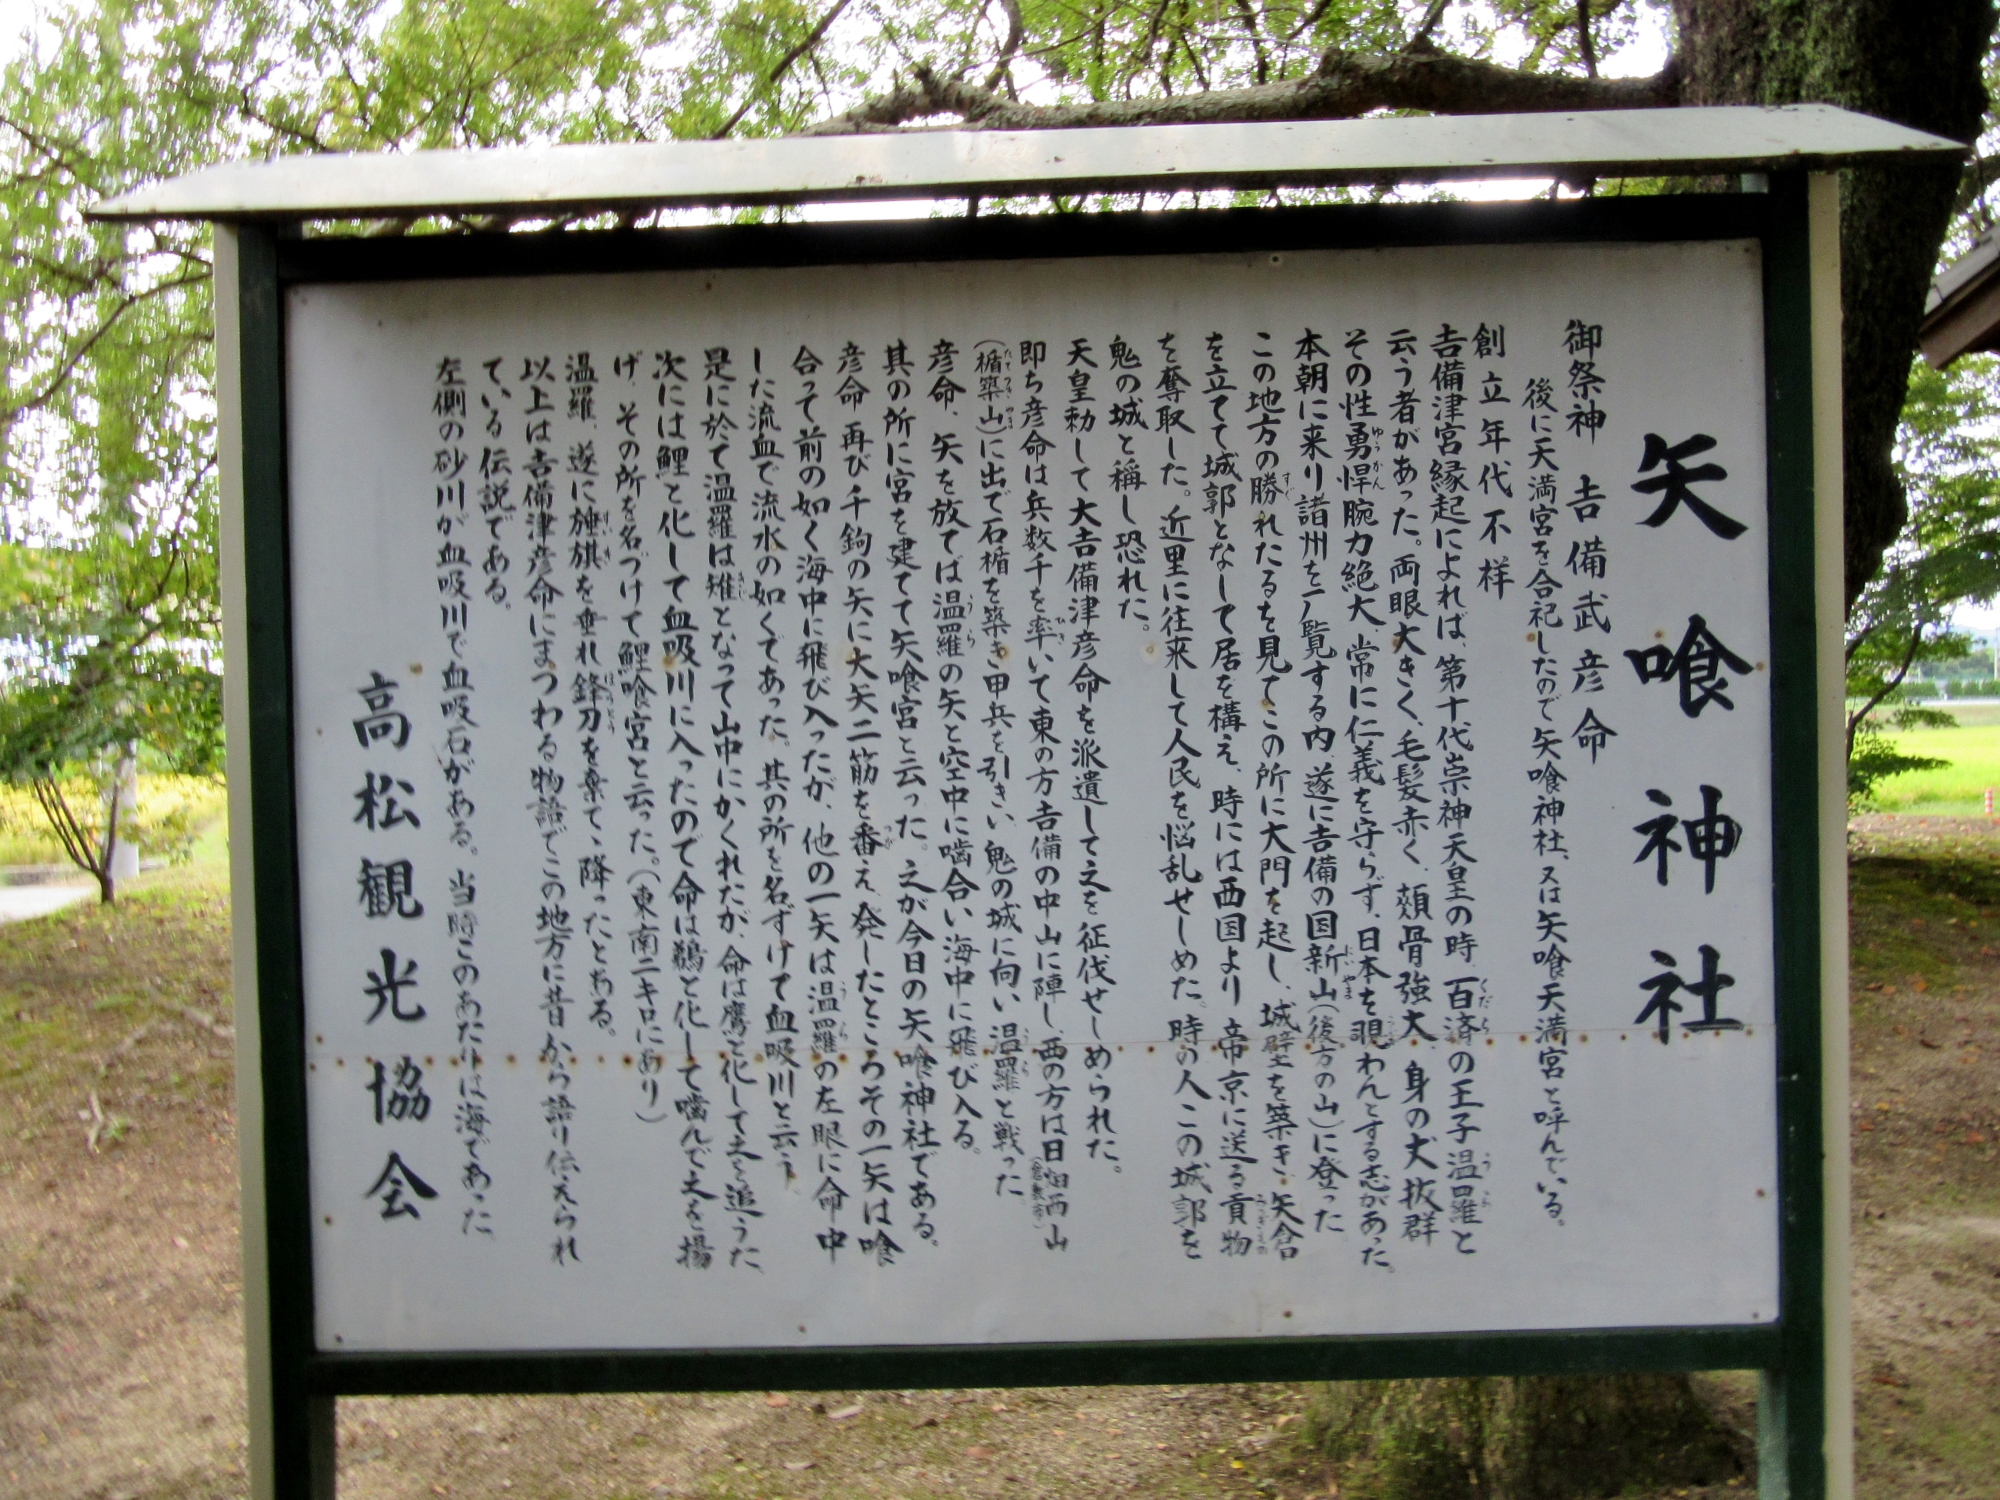 矢喰神社
御祭神 吉備武彦命
後に天満宮を合祀したので矢喰神社、又は矢喰天満宮と呼んでいる。
創立年代不祥
吉備津宮縁起によれば、第十代崇神天皇の時、百済の王子温羅と
云う者があった。両眼大きく、毛髪赤く、頬骨強大、身の丈抜群
その性勇悍腕力絶大、常に仁義を守らず、日本を覗わんとする志があった。
本朝に来り諸州を一覧する内、遂に吉備の国新山(後方の山)に登った
この地方の勝れたるを見てこの所に大門を起し、城壁を築き、矢倉
を立てて城郭となして居を構え、時には西国より帝京に送る貢物
を奪取した。近里に往来して人民を悩乱せしめた。時の人この城郭を
鬼の城と稱し恐れた。
天皇勅して大吉備津彦命を派遣して之を征伐せしめられた。
即ち彦命は兵数千を率いて東の方吉備の中山に陣し、西の方は日畑西山(倉敷市)
(楯築山)に出で石楯を築き甲兵を引きい、鬼の城に向い温羅と戦った
彦命、矢を放てば温羅の矢と空中に噛合い海中に飛び入る。
其の所に宮を建てて矢喰宮と云った。之が今日の矢喰神社である。
彦命再び千鈞の矢に大矢二筋を番え、発したところその一矢は喰
合って前の如く海中に飛び入ったが、他の一矢は温羅の左眼に命中
した流血で流水の如くであった。其の所を名ずけて血吸川と云う。
是に於て温羅は雉となって山中にかくれたが、命は鷹と化して之を追うた
次には鯉と化して血吸川に入ったので命は鵜と化して噛んで之を揚
げ、その所を名づけて鯉喰宮と云った。(東南二キロにあり)
温羅、遂に旌旗を垂れ鋒刀を棄て、降ったとある。
以上は吉備津彦命にまつわる物語でこの地方に昔から語り伝えられ
ている伝説である。
左側の砂川が血吸川で血吸石がある。当時このあたりは海であった
高松観光協会